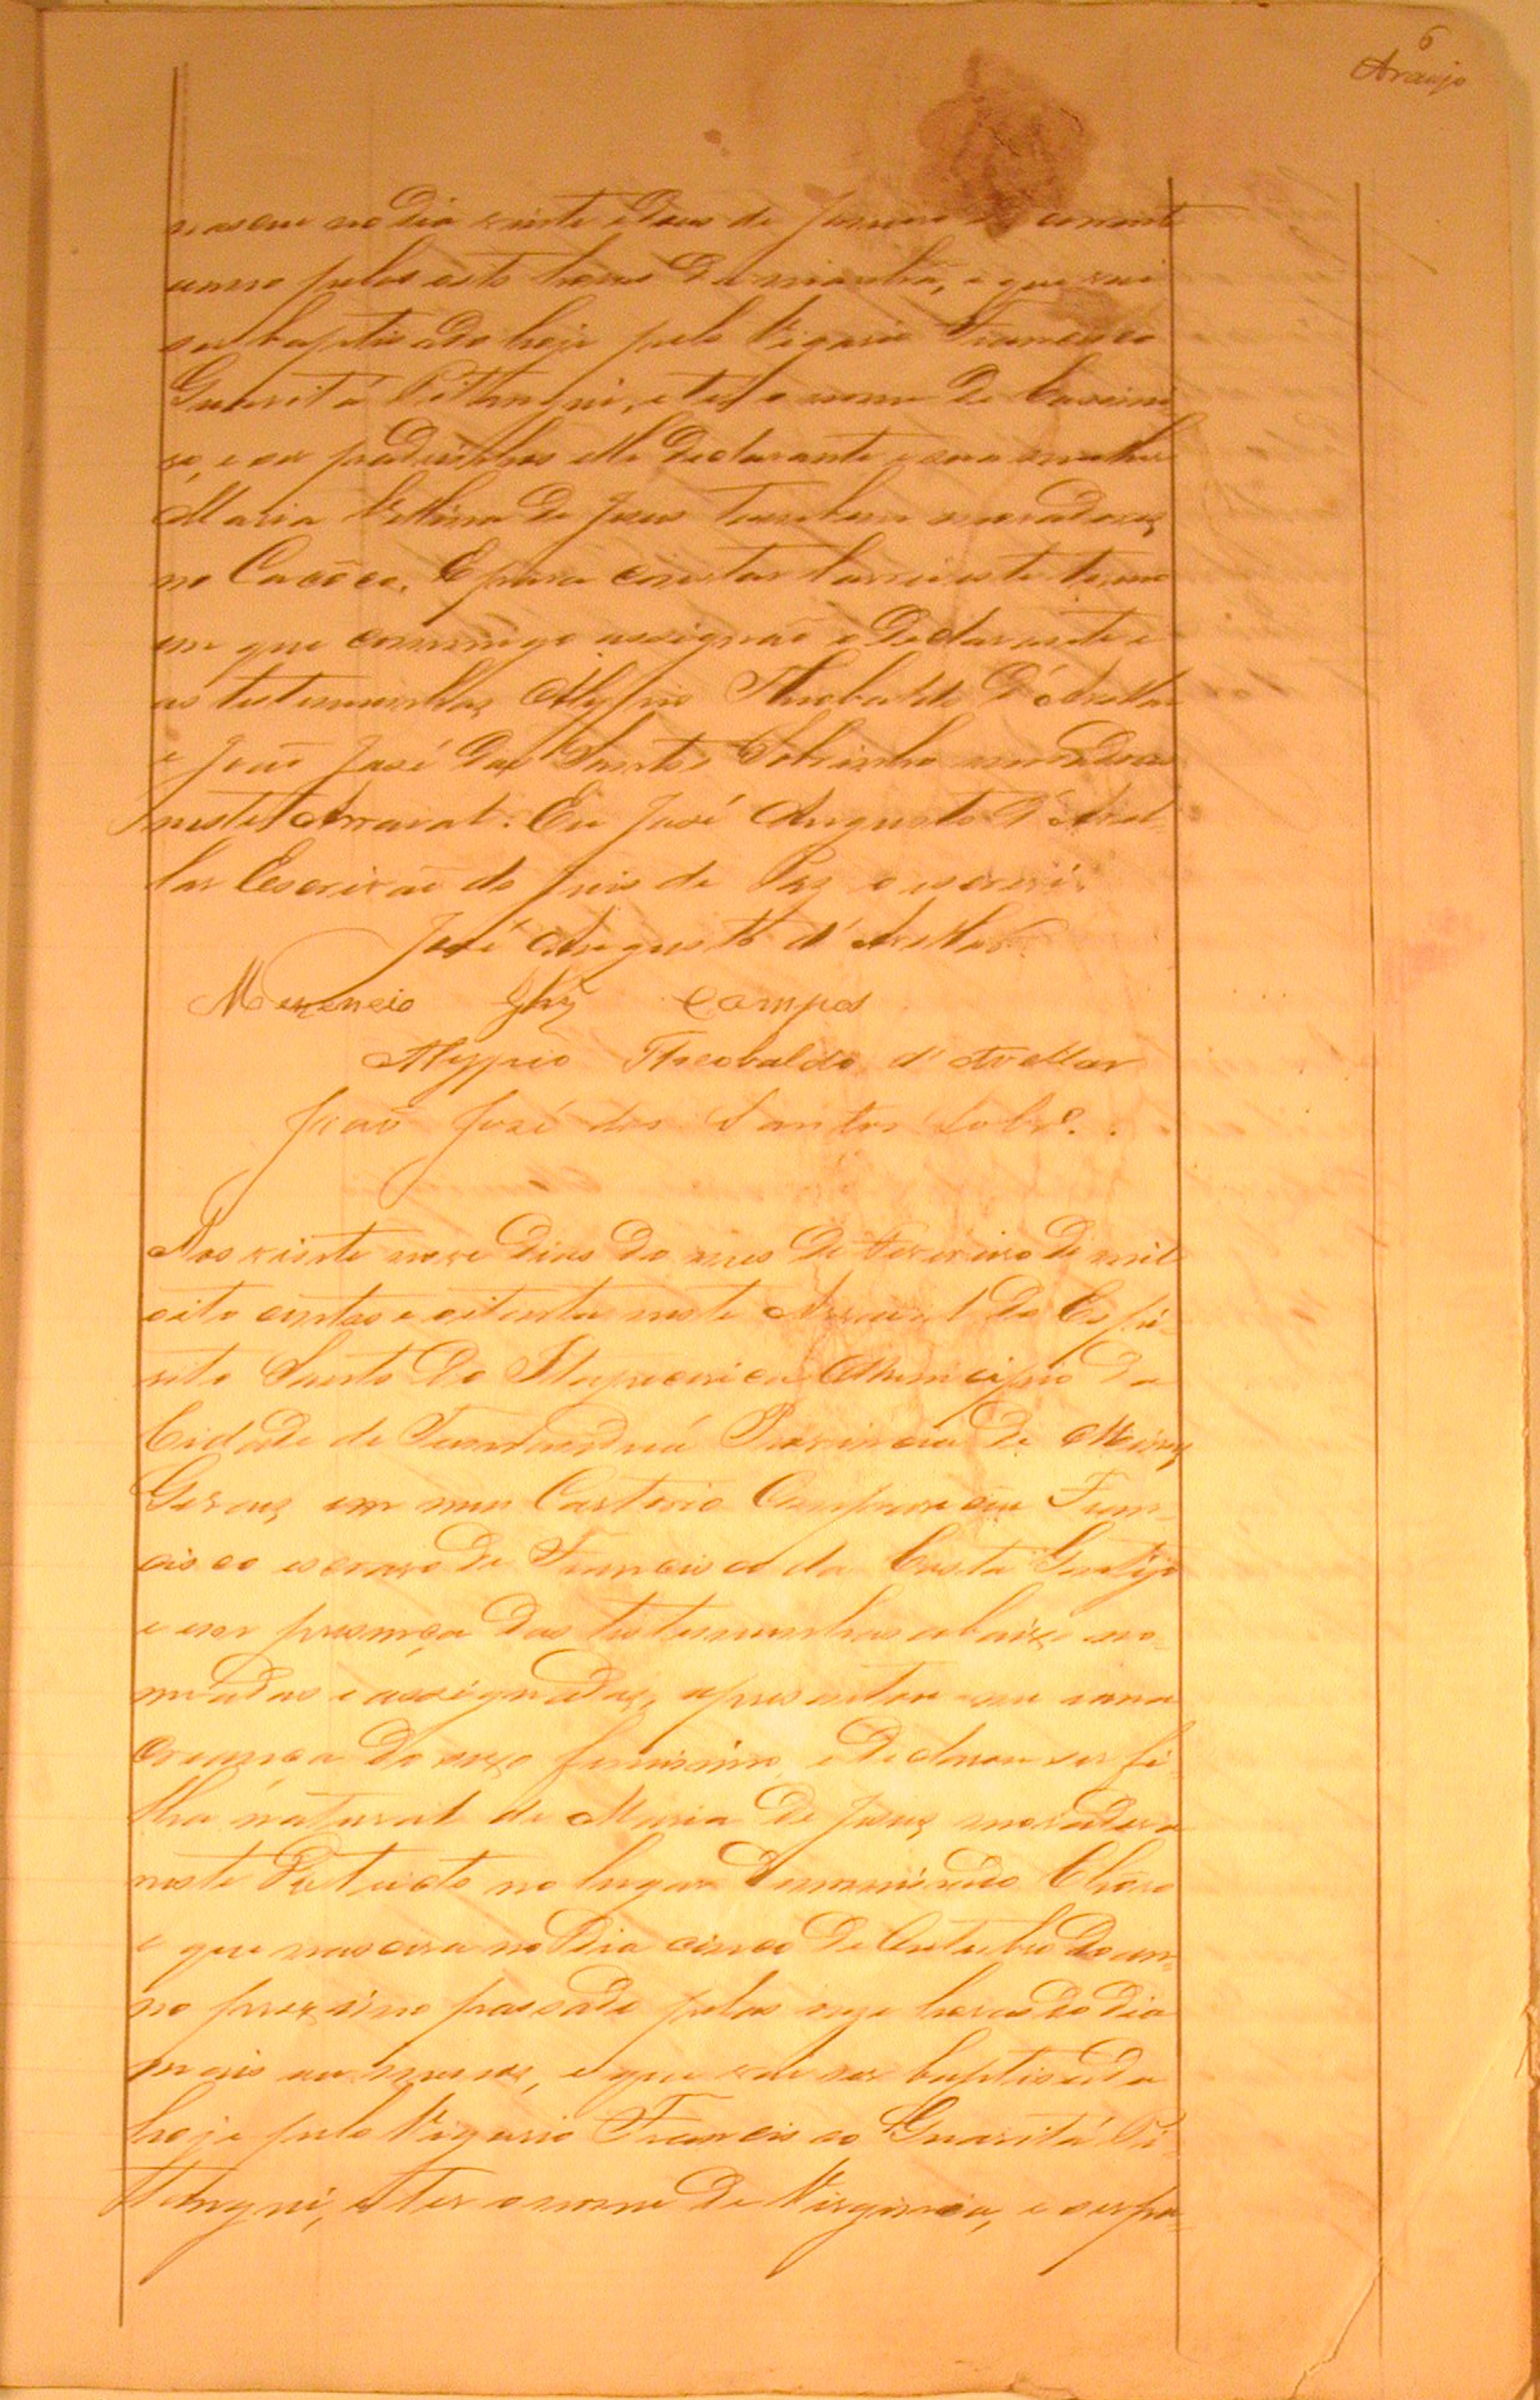 6
Araujo
nasceu no dia vinte e dous de Janeiro do corrente
anno pelas oito horas da manhã, e que vai
ser baptisado hoje pelo Vigario Francisco
Guaritá Pitangui, e ter o nome de Casimi
ro, e ser padrinhos elle declarante e sua mulher
Maria de Jesus tambem moradores
no Cacôco. E para constar lavrei este termo
em que commigo assignão o declarante e
as testemunhas Alypio Theobaldo d'Avellar
e João José dos Santos Sobrinho moradores
neste Arraial. Eu José Augusto d'Avel-
lar Escrivão do Juis de Paz o escrevi.
José Augusto d'Avellar.
Campos
Alypio Theobaldo d'Avellar
João José dos Santos Sobrº.
Aos vinte nove dias do mes de Fevereiro de mil
oito centos e oitenta neste Arraial do Espi-
rito Santo do Itapecerica Municipio da
Cidade de Tamanduá Provincia de Minas
Geraes em meu Cartorio Compareceu Fran-
cisco escravo de Francisco da Costa
e em presença das testemunhas abaixo no-
miadas e assignadas, apresentou-me uma
creança do sexo feminino, e declarou ser fi-
lha natural de Maria de Jesus moradora
neste Districto no lugar denominado
e que nascera no dia cinco de Outubro do an-
no proximo passado pelas onze horas do dia
mais ou menos, e que vae ser baptisada
hoje pelo Vigario Francisco Guaritá Pi-
tangui, e ter o nome de Virginia, e ser pa-